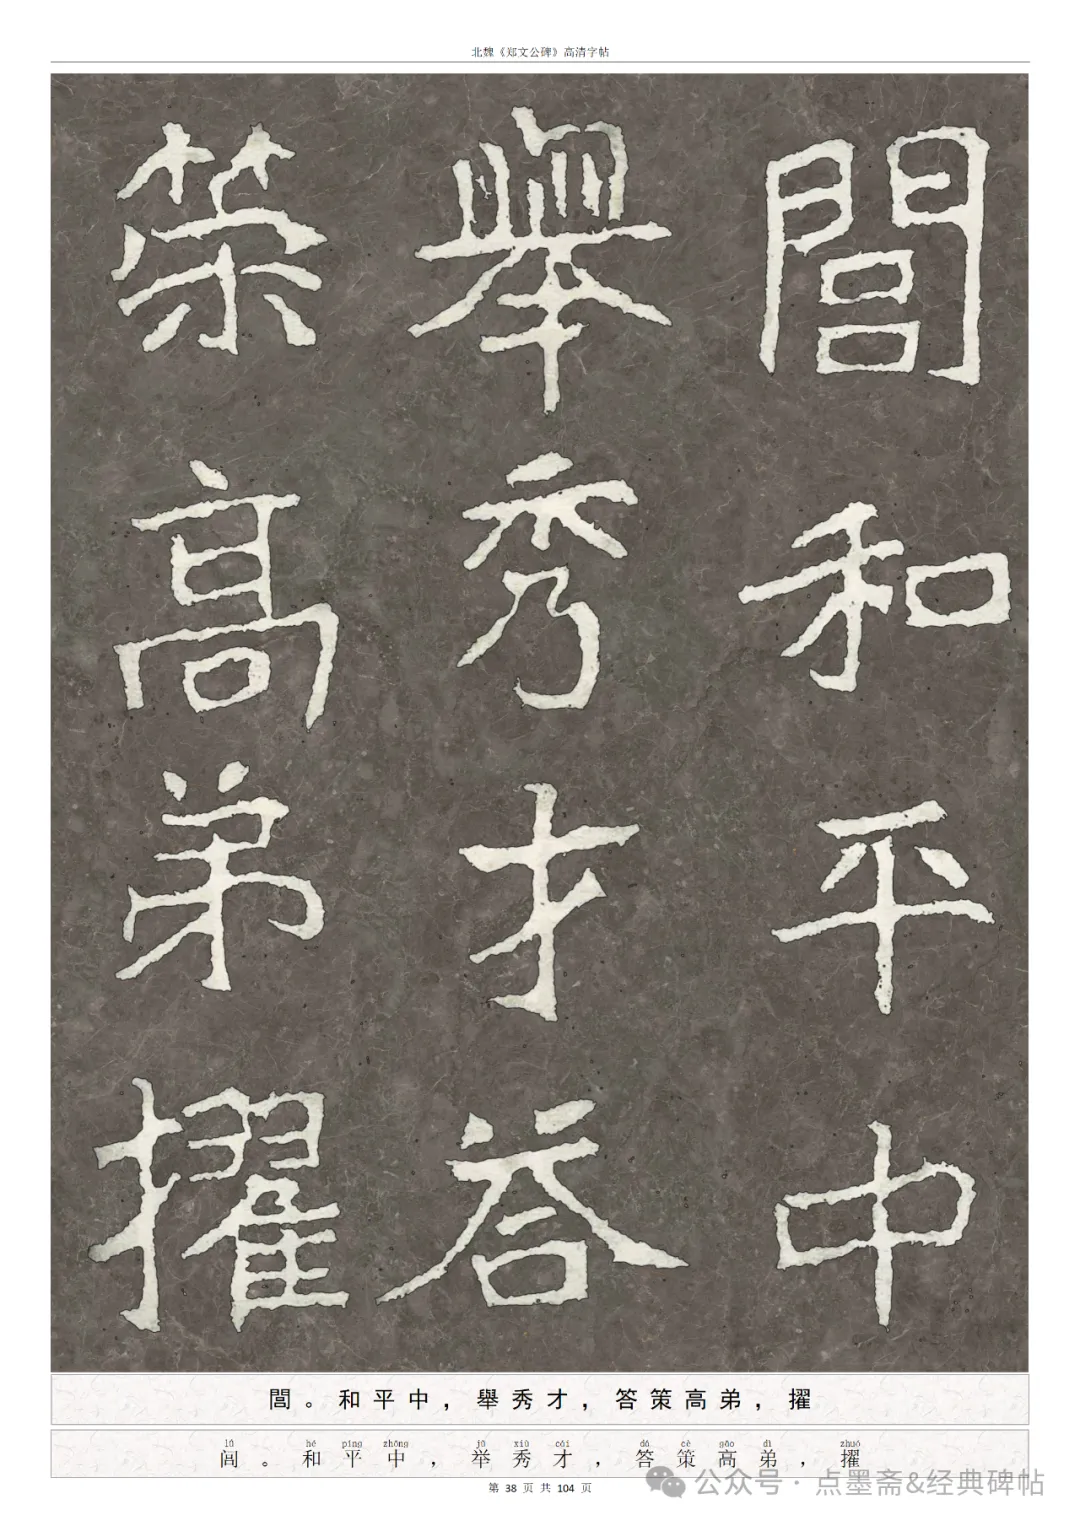 北魏《郑文公碑》高清字帖
閭和平中
舉秀才荅
策高弟擢
閭。和平中，舉秀才，答策高弟，擢
lǘ hé píng zhōng jǔ xiù cái dá cè gāo dì zhuó
闾。和平中，举秀才，答策高弟，擢
第 38 页 共 104 页
公众号·点墨斋&经典碑帖